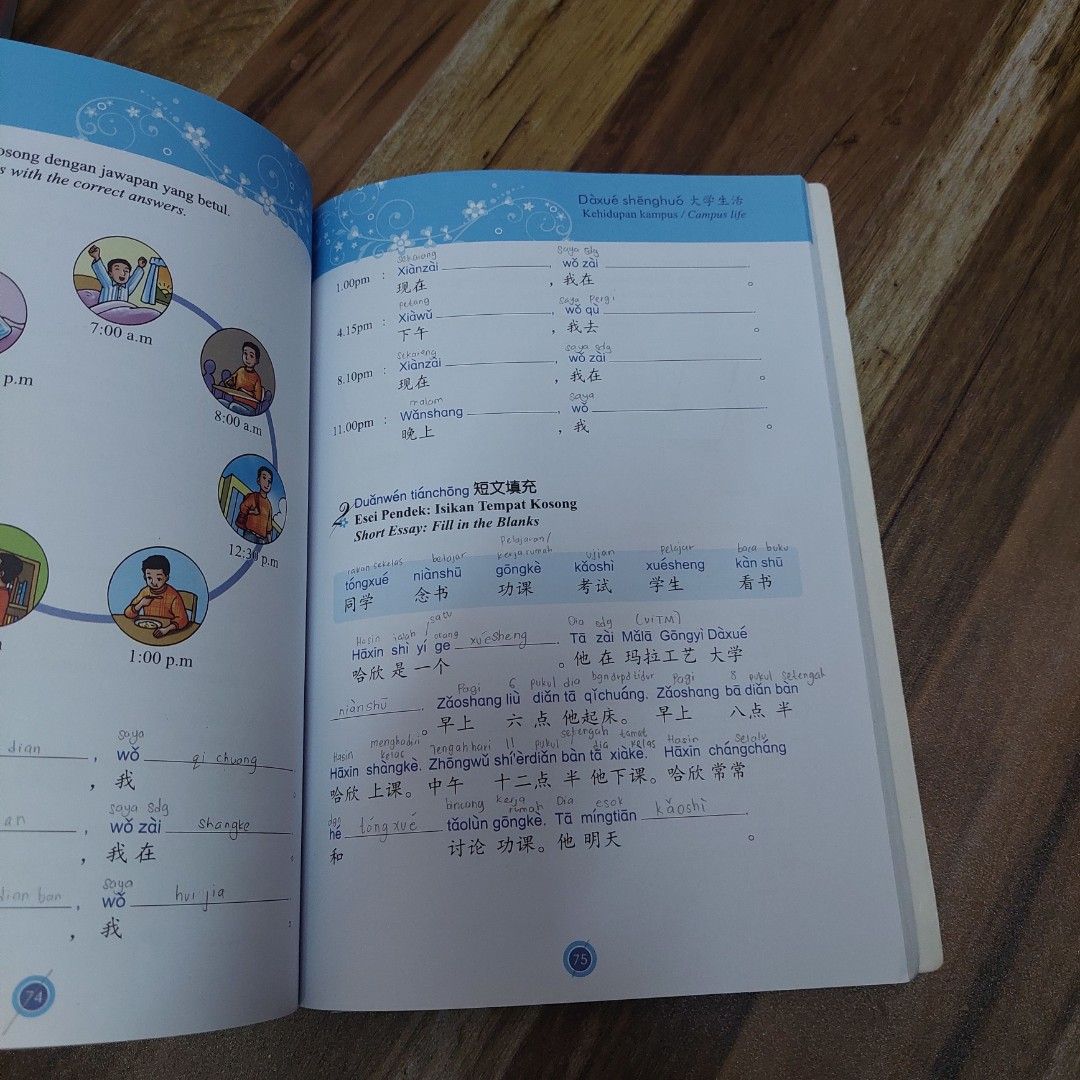 osong dengan jawapan yang betul.
s with the correct answers.
7:00 a.m
p.m
8:00 a.m
12:30 p.m
1:00 p.m
saya
dian , wǒ qi chuang
, 我
saya sdg
an , wǒ zài shangke
, 我 在 。
saya
dian ban , wǒ hui jia
, 我 。
74
Dàxué shēnghuó 大学生活
Kehidupan kampus / Campus life
sekarang saya sdg
1.00pm : Xiànzài , wǒ zài
现在 , 我在 。
petang saya pergi
4.15pm : Xiàwǔ , wǒ qù
下午 , 我去 。
sekarang saya sdg
8.10pm : Xiànzài , wǒ zài
现在 , 我在 。
malam saya
11.00pm : Wǎnshang , wǒ
晚上 , 我 。
2 Duǎnwén tiánchōng 短文填充
Esei Pendek: Isikan Tempat Kosong
Short Essay: Fill in the Blanks
pelajaran/
rakan sekelas belajar kerja rumah ujian pelajar baca buku
tóngxué niànshū gōngkè kǎoshì xuésheng kàn shū
同学 念书 功课 考试 学生 看书
satu
Hasin ialah orang Dia sdg (UiTM)
Hāxīn shì yí ge xuésheng . Tā zài Mǎlā Gōngyì Dàxué
哈欣 是 一个 。他 在 玛拉工艺 大学
Pagi 6 pukul dia bgn drpd tidur Pagi 8 pukul setengah
niànshū . Zǎoshang liù diǎn tā qǐchuáng. Zǎoshang bā diǎn bàn
。早上 六 点 他起床。 早上 八点 半
Hasin menghadiri kelas Tengahhari 11 pukul setengah dia tamat kelas Hasin selalu
Hāxīn shàngkè. Zhōngwǔ shí'èrdiǎn bàn tā xiàkè. Hāxīn chángcháng
哈欣 上课。中午 十二点 半 他下课。哈欣 常常
dgn bincang kerja rumah Dia esok
hé tóng xué tǎolùn gōngkè. Tā míngtiān kǎoshì .
和 讨论 功课。他 明天 。
75